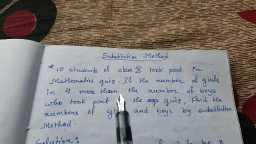 Substitution Method
* 10 students of class X took part in
Mathematics quiz. If the number of girls
is 4 more than the number of boys
who took part in the quiz, Find the
numbers of girls and boys by substitution
Method.
Solution: